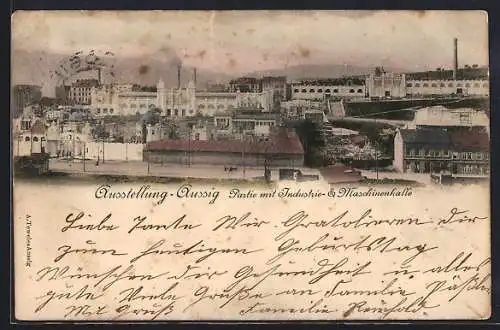 Ausstellung-Aussig Partie mit Industrie- & Maschinenhalle
Liebe Tante Wir Gratolieren dir
zum heutigen Geburtstag
Wünschen dir Gesundheit u alles
gute Viele Grüße an Familie
Mit Gruß Familie